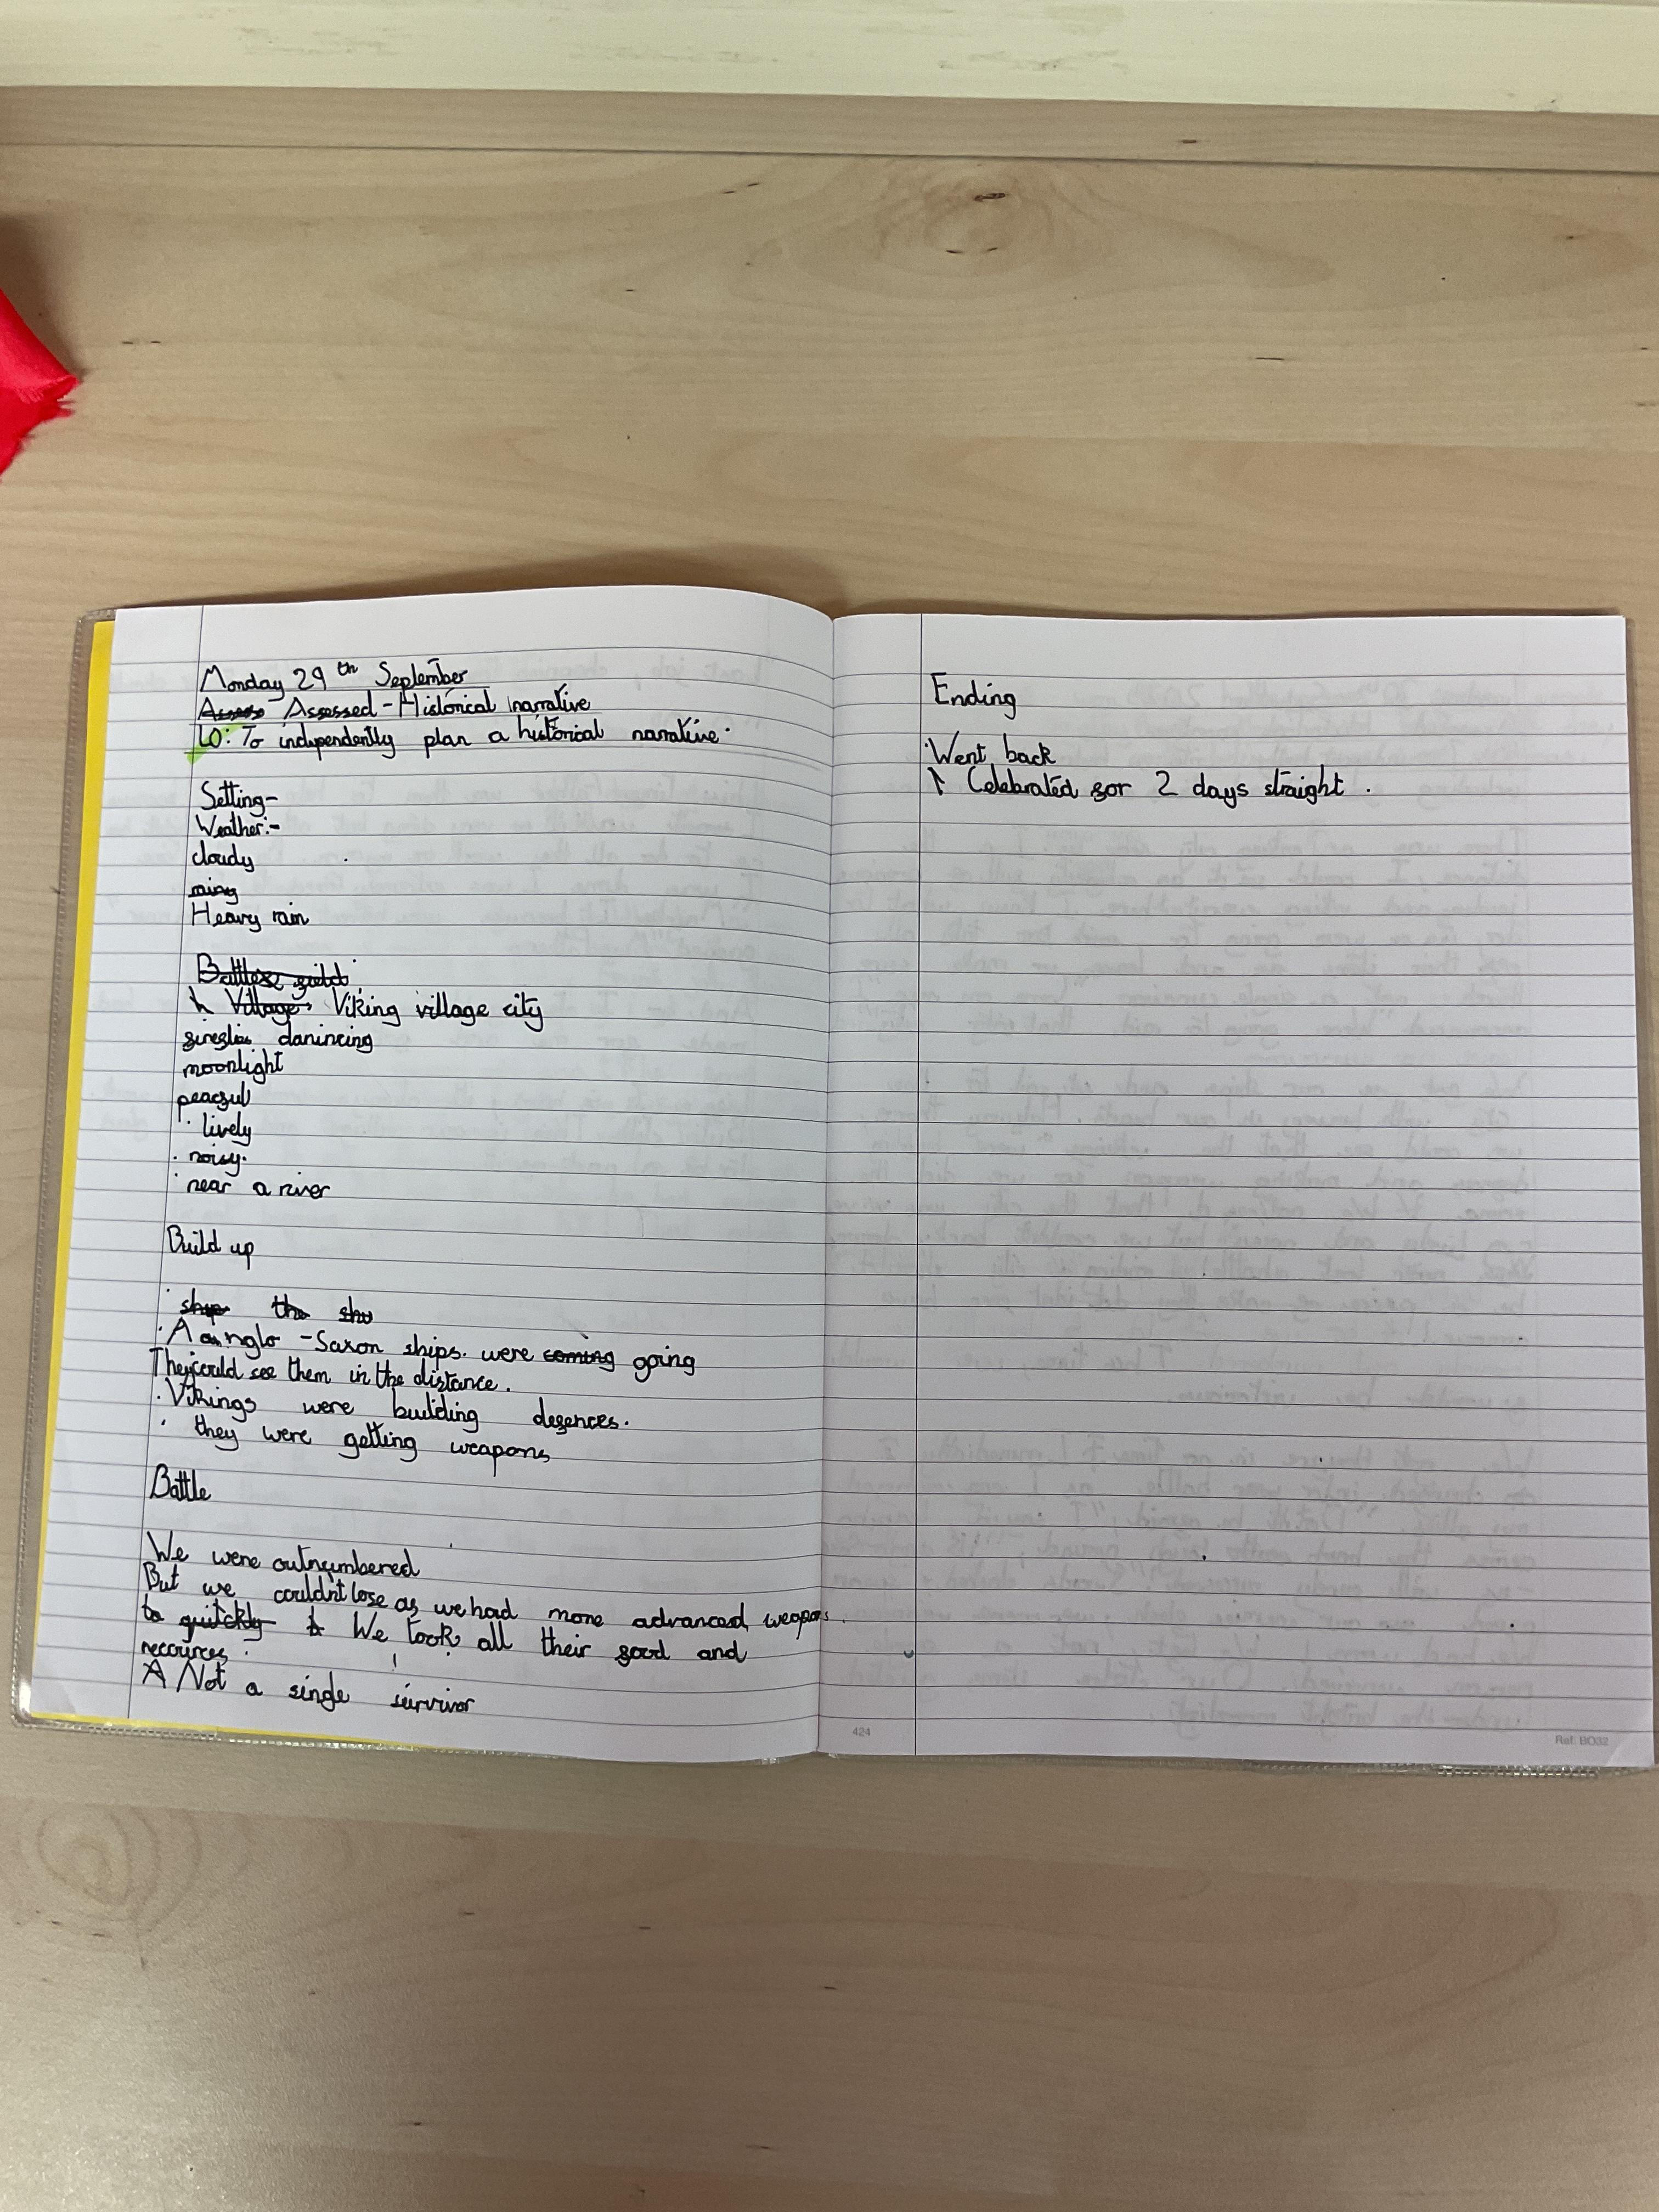 Monday 29th September
Assess Assessed - Historical narrative
LO: To independently plan a historical narrative.
Setting-
Weather:-
cloudy
Heavy rain
Battle field
Village Viking village city
danincing
moonlight
peaceful
· lively
· noisy.
· near a river
Build up
ship the shu
· A anglo - Saxon ships. were coming going
They could see them in the distance.
· Vikings were building defences.
· they were getting weapons
Battle
We were outnumbered
But we couldn't lose as we had more advanced weapons.
to quickly We took all their food and
recources.
A Not a single survivor
Ending
·Went back
Celebrated for 2 days straight.
424
Ref: BO32